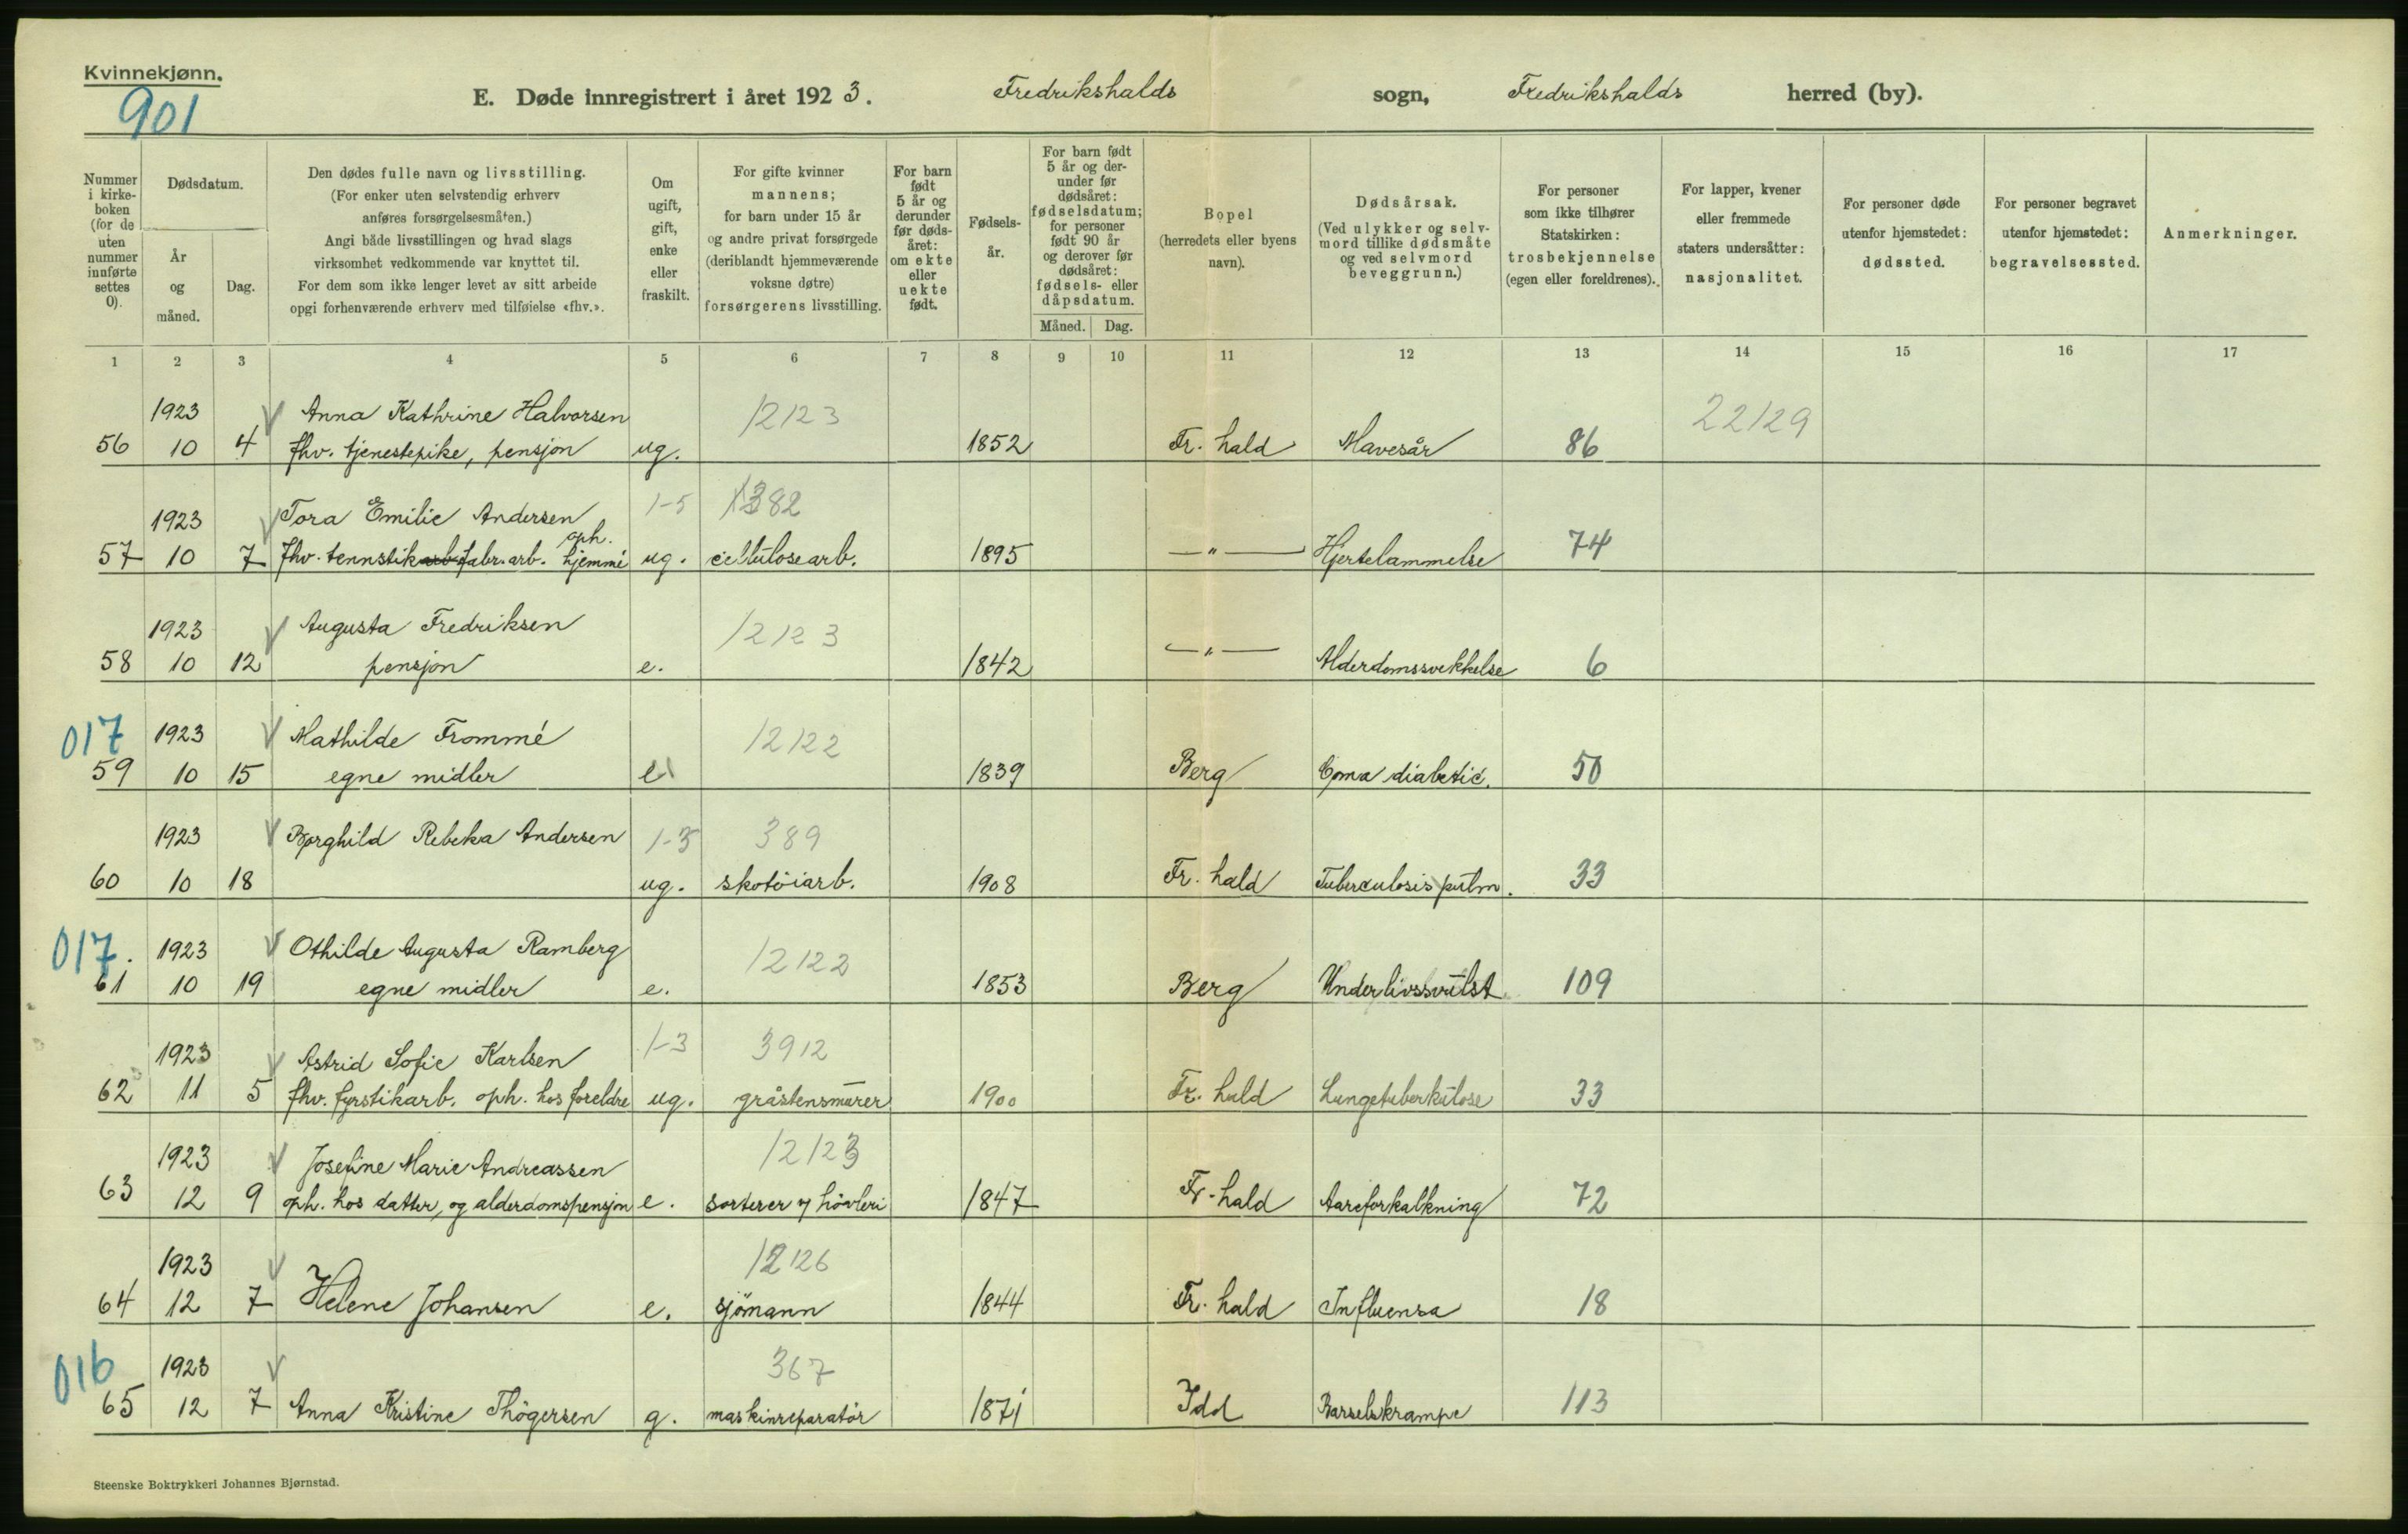 Kvinnekjønn.
901
E. Døde innregistrert i året 1923. Fredrikshalds sogn, Fredrikshalds herred (by).
Nummer i kirke- boken (for de uten nummer innførte settes 0).
Dødsdatum.
År og måned.
Dag.
Den dødes fulle navn og livsstilling.
(For enker uten selvstendig erhverv
anføres forsørgelsesmåten.)
Angi både livsstillingen og hvad slags
virksomhet vedkommende var knyttet til.
For dem som ikke lenger levet av sitt arbeide
opgi forhenværende erhverv med tilføielse «fhv.».
Om ugift, gift, enke eller fraskilt.
For gifte kvinner
mannens;
for barn under 15 år
og andre privat forsørgede
(deriblandt hjemmeværende
voksne døtre)
forsørgerens livsstilling.
For barn født 5 år og derunder før døds- året: om ekte eller uekte født.
Fødsels- år.
For barn født 5 år og der- under før dødsåret: fødselsdatum; for personer født 90 år og derover før dødsåret: fødsels- eller dåpsdatum.
Måned. Dag.
Bopel
(herredets eller byens
navn).
Dødsårsak.
(Ved ulykker og selv-
mord tillike dødsmåte
og ved selvmord
beveggrunn.)
For personer
som ikke tilhører
Statskirken:
trosbekjennelse
(egen eller foreldrenes).
For lapper, kvener
eller fremmede
staters undersåtter:
nasjonalitet.
For personer døde
utenfor hjemstedet:
dødssted.
For personer begravet
utenfor hjemstedet:
begravelsessted.
Anmerkninger.
1 2 3 4 5 6 7 8 9 10 11 12 13 14 15 16 17
1923 Anna Kathrine Halvorsen 12123 22129
56 10 4 fhv. tjenestepike, pensjon ug. 1852 Fr. hald Mavesår 86
1923 Tora Emilie Andersen 1-5 1382
oph.
57 10 7 fhv. tennstikarb fabr. arb. hjemme ug. cellulosearb. 1895 —"— Hjertelammelse 74
1923 Augusta Fredriksen 12123
58 10 12 pensjon e. 1842 —"— Alderdomssvekkelse 6
017 1923 Mathilde Frommé 12122
59 10 15 egne midler e. 1839 Berg Coma diabetic. 50
1923 Borghild Rebeka Andersen 1-3 389
60 10 18 ug. skotöiarb. 1908 Fr. hald Tuberculosis pulm. 33
017. 1923 Othilde Augusta Ramberg 12122
61 10 19 egne midler e. 1853 Berg Underlivssvulst 109
1923 Astrid Sofie Karlsen 1-3 3912
62 11 5 fhv. fyrstikarb. oph. hos foreldre ug. gråstensmurer 1900 Fr. hald Lungetuberkulose 33
1923 Josefine Marie Andreassen 12123
63 12 9 oph. hos datter, og alderdomspensjon e. sorterer v/ hövleri 1847 Fr. hald Aareforkalkning 72
1923 12126
64 12 7 Helene Johansen e. sjömann 1844 Fr. hald Influensa 18
016 1923 367
65 12 7 Anna Kristine Thögersen g. maskinreparatör 1871 Idd Barselskrampe 113
Steenske Boktrykkeri Johannes Bjørnstad.